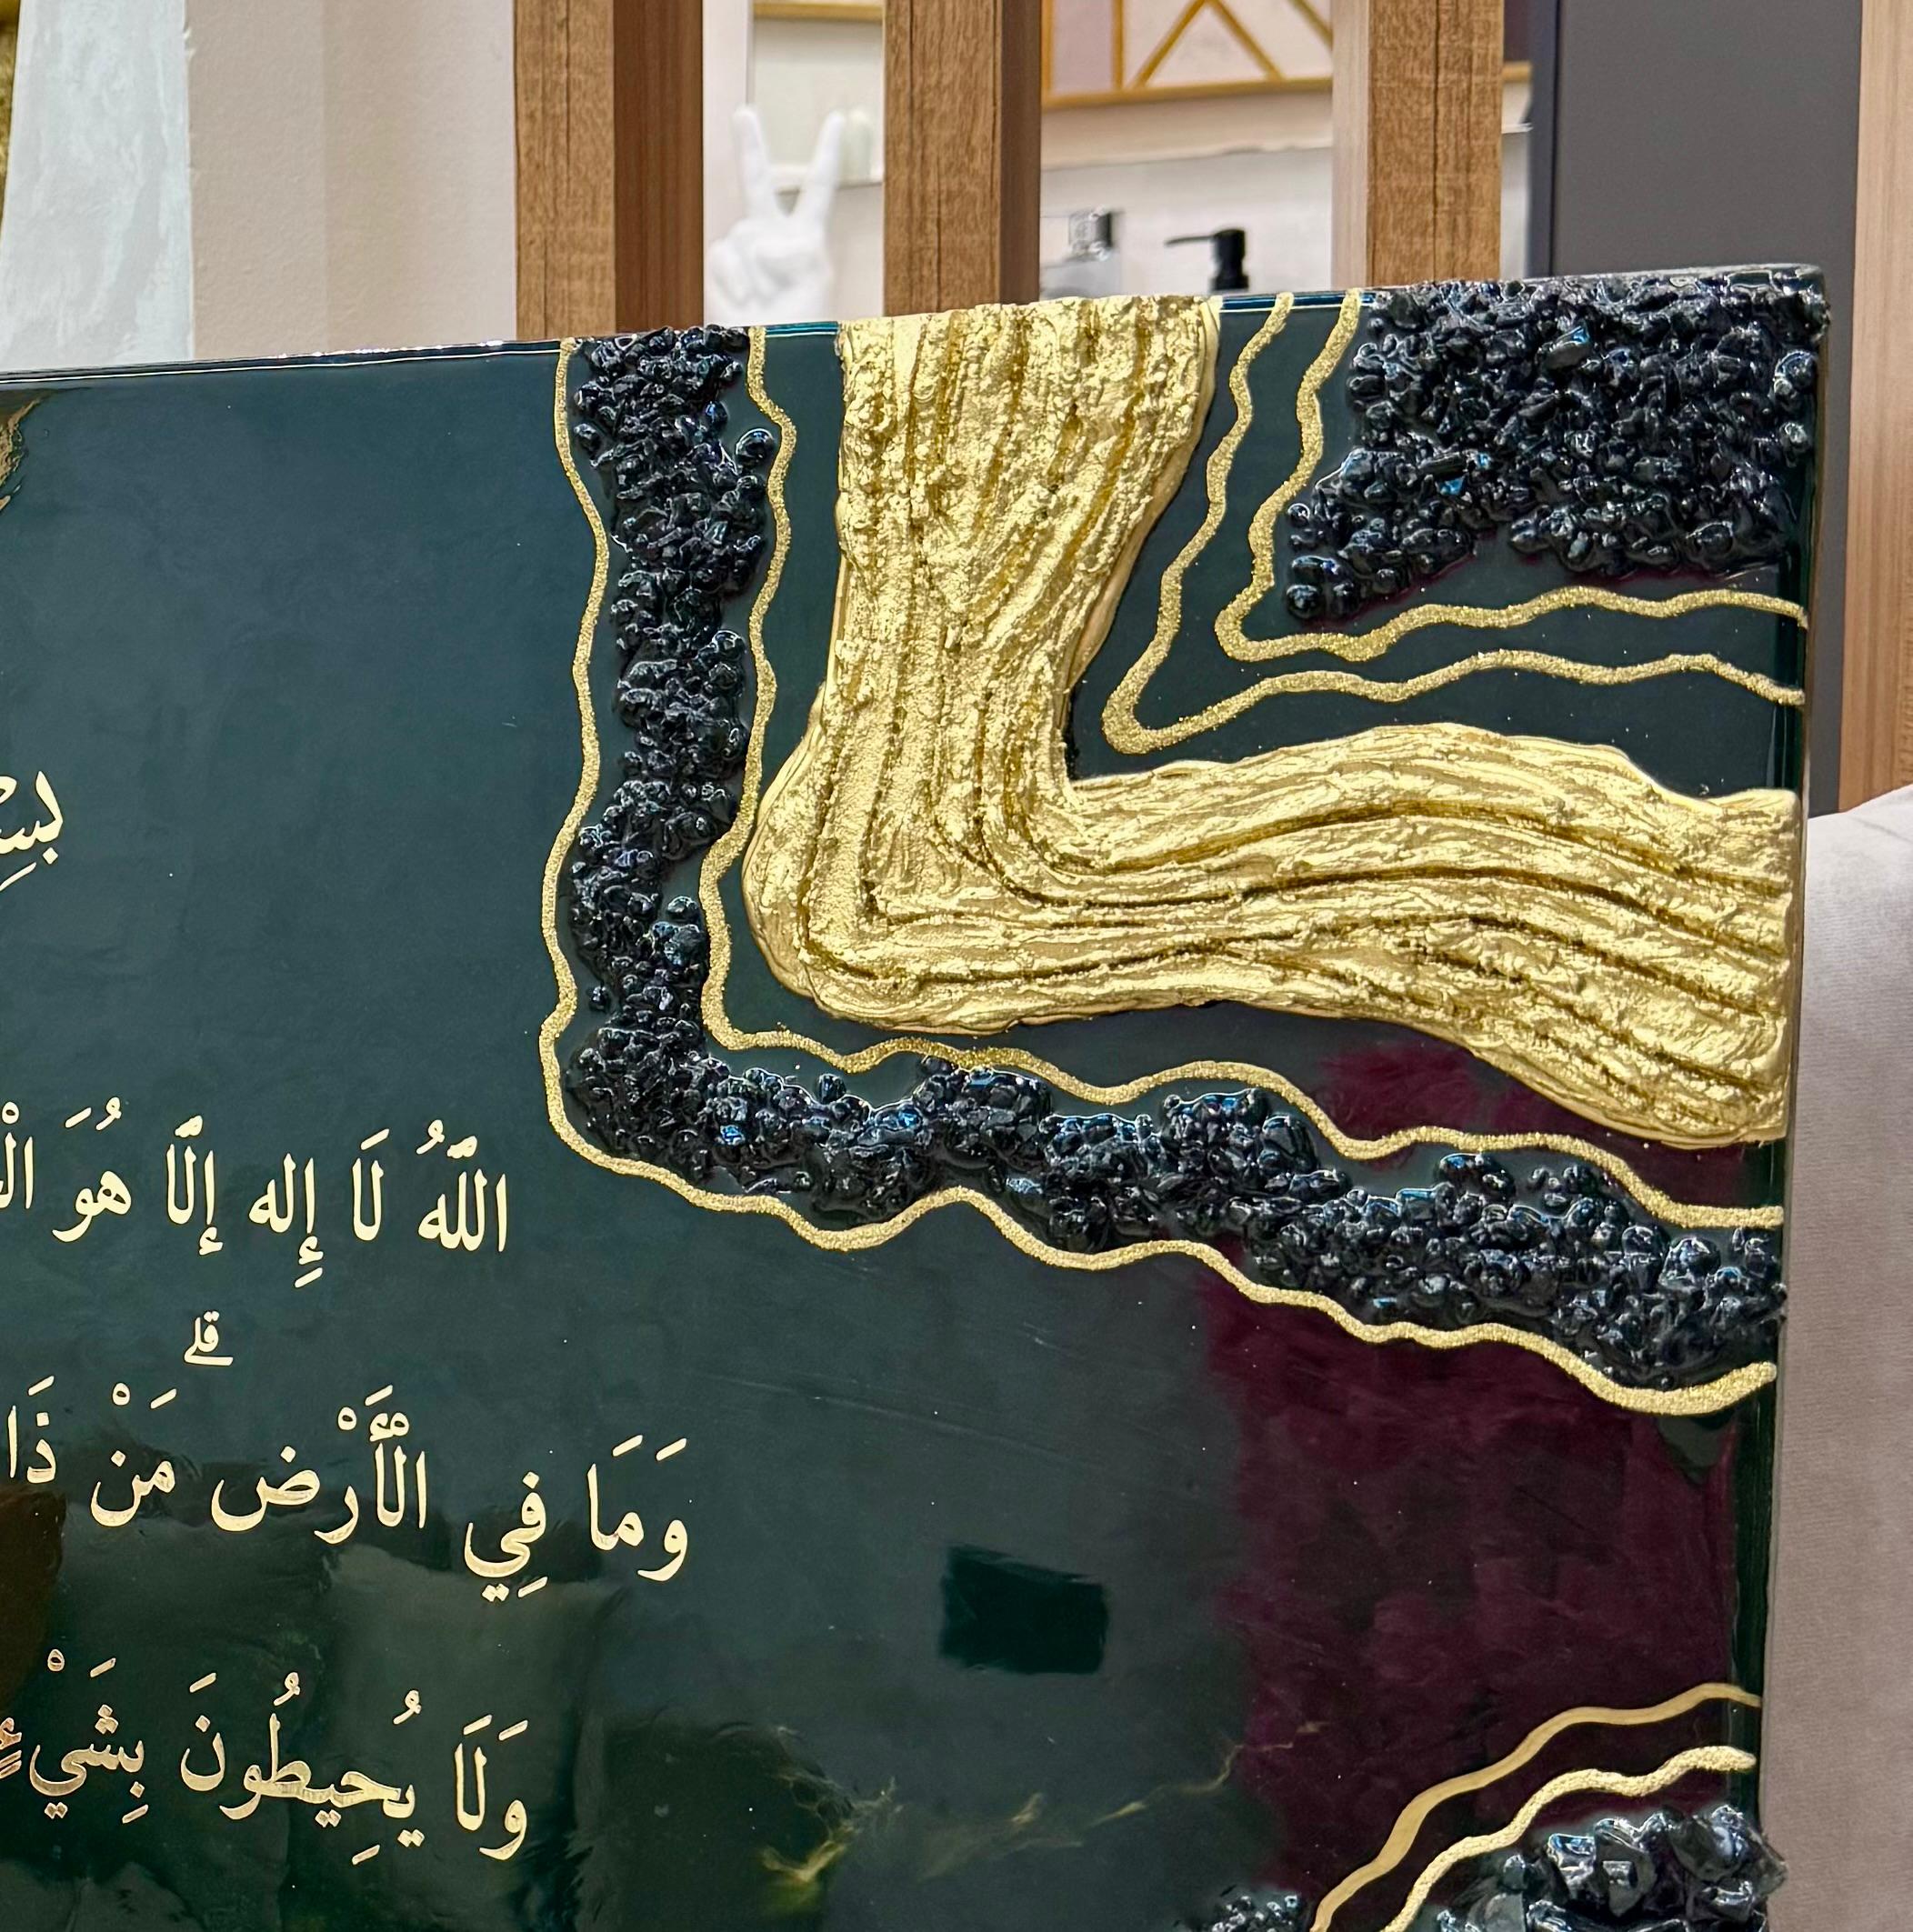 اللَّهُ لَا إِله إِلَّا هُوَ
قلے
وَمَا فِي الْأَرْضِ مَنْ ذَا
وَلَا يُحِيطُونَ بِشَيْءٍ